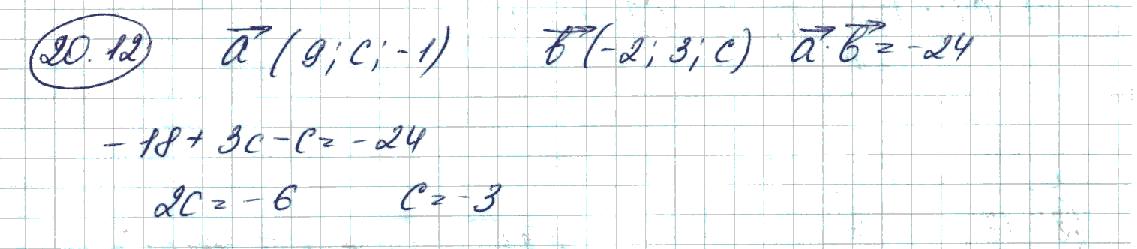 20.12 a⃗ (9; c; -1) b⃗ (-2; 3; c) a⃗ · b⃗ = -24
-18 + 3c - c = -24
2c = -6 c = -3